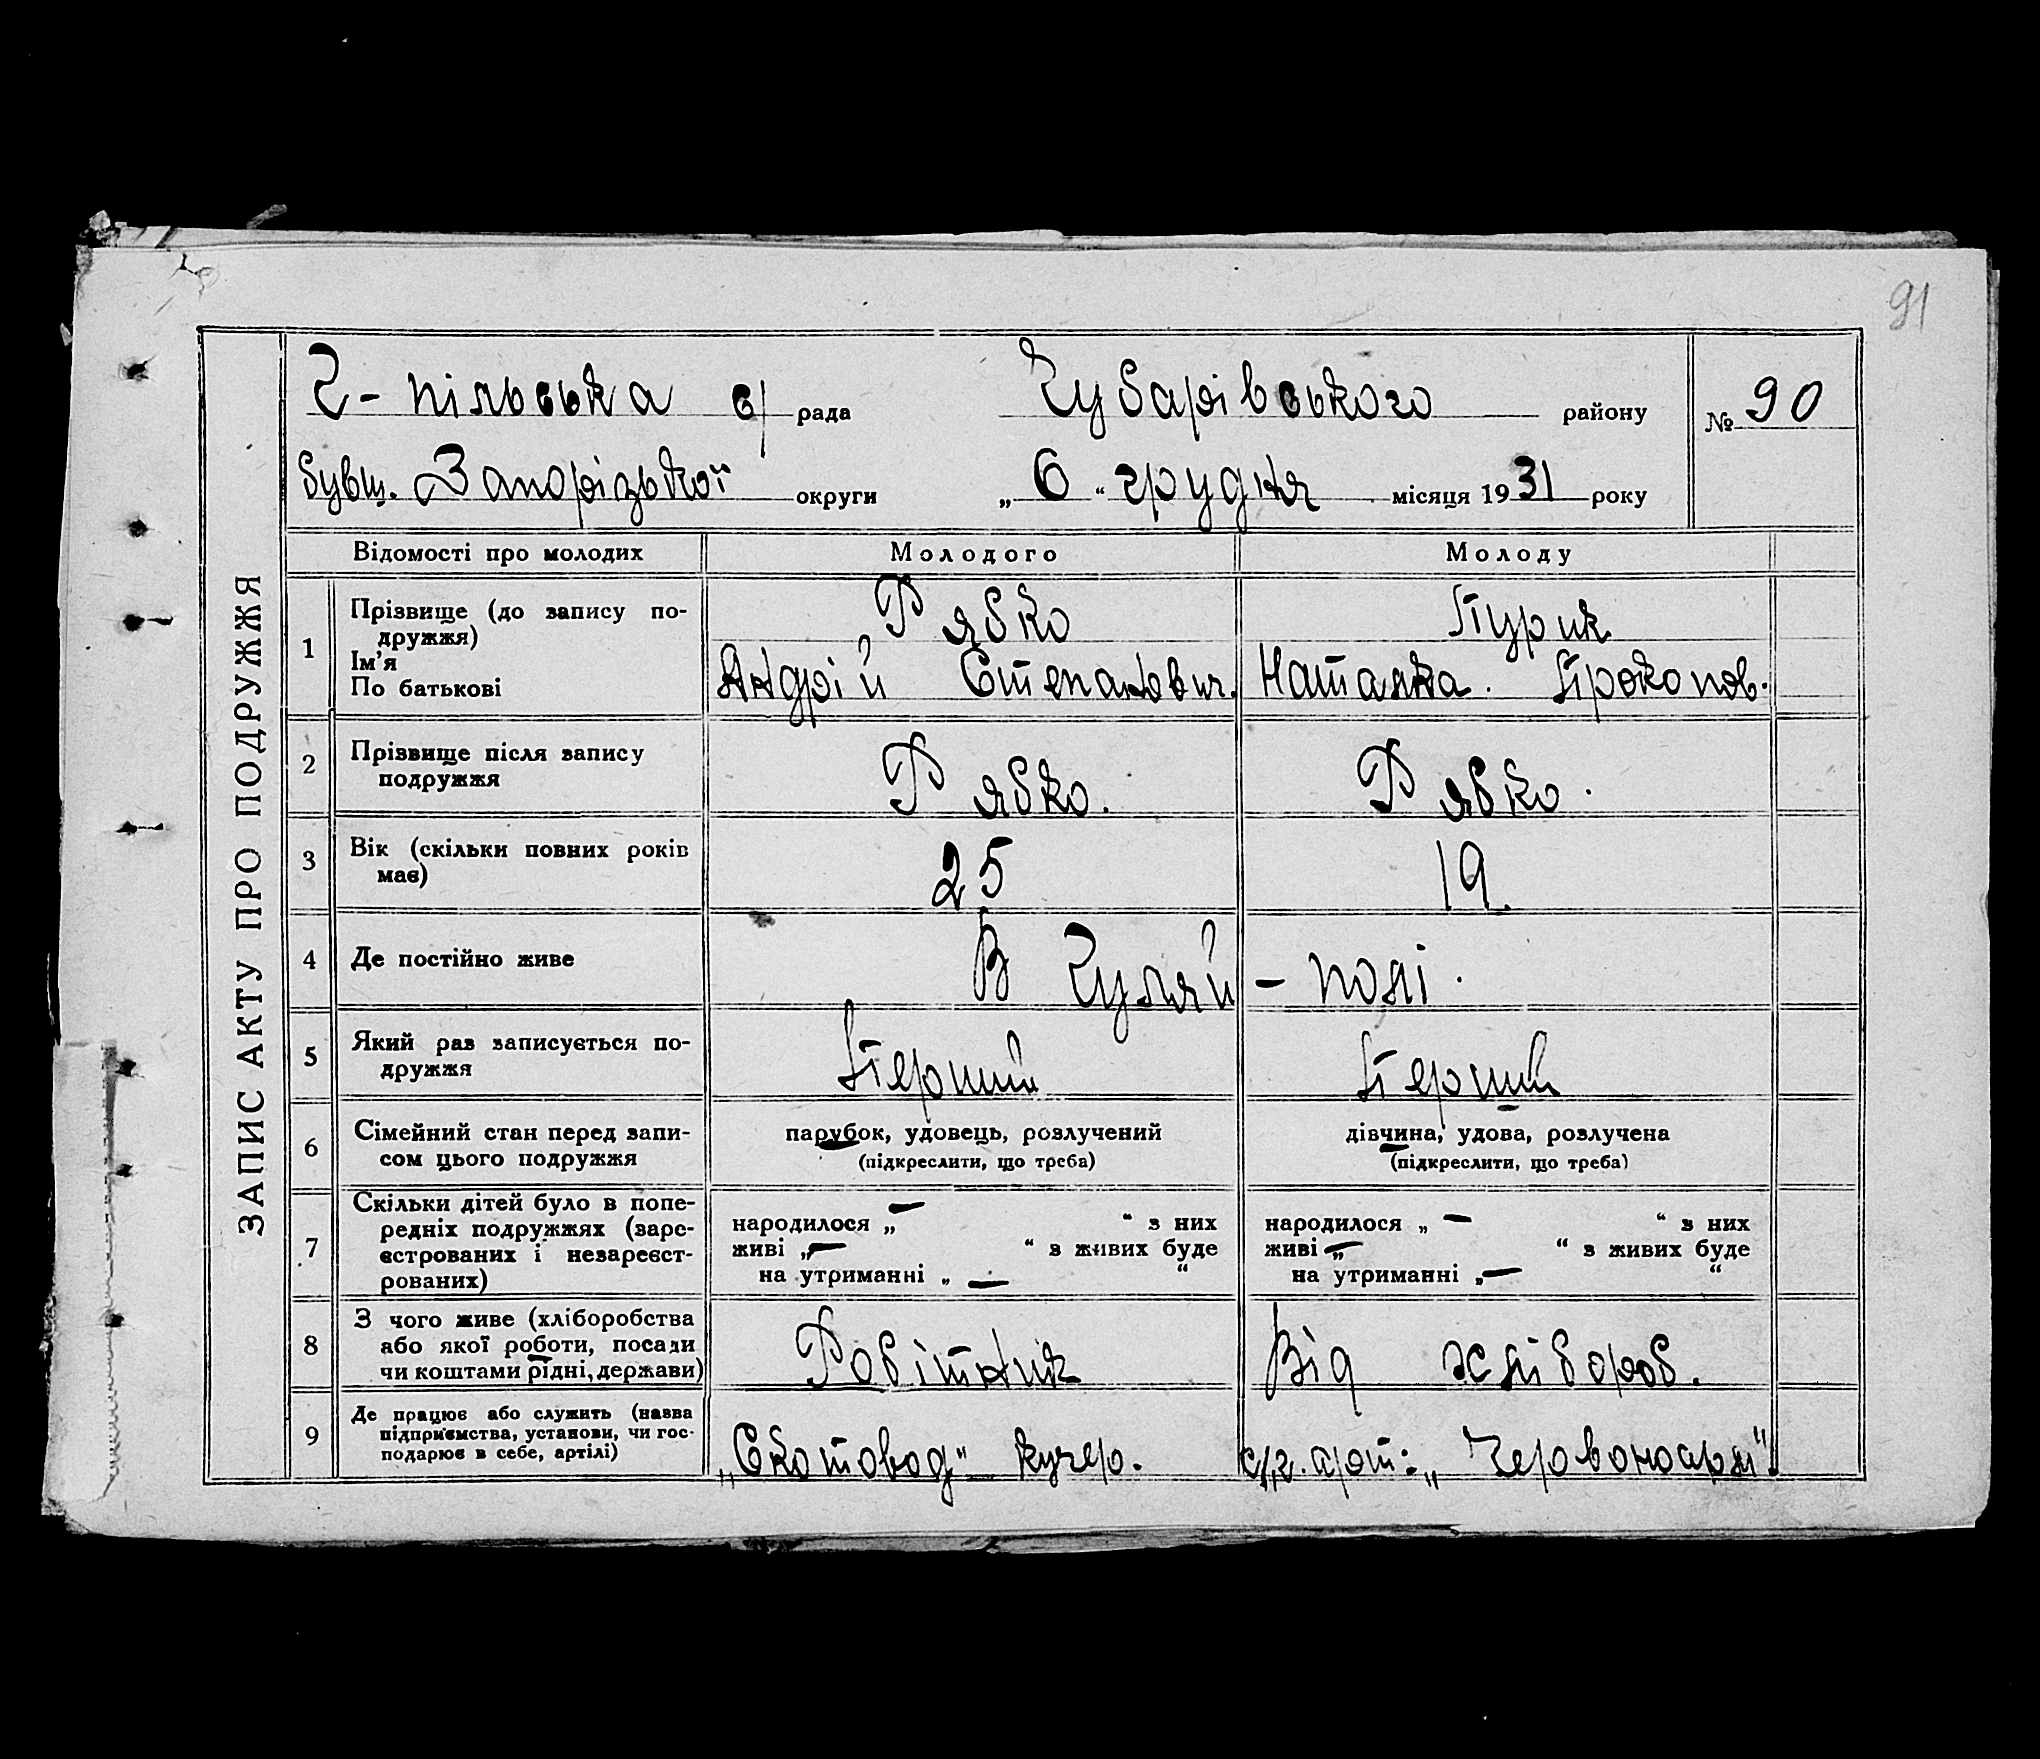 91
Г- пільська с/ рада Чубарівського району № 90
бувш. Запорізької округи „ 6 “ грудня місяця 1931 року
ЗАПИС АКТУ ПРО ПОДРУЖЖЯ
Відомості про молодих Молодого Молоду
1 Прізвище (до запису по-
дружжя) Рябко Пурик
Ім’я
По батькові Андрій Степанович. Наталка. Прокопов.
2 Прізвище після запису
подружжя Рябко. Рябко.
3 Вік (скільки повних років
має) 25 19.
4 Де постійно живе В Гуляй - полі.
5 Який раз записується по-
дружжя Перший Перший
6 Сімейний стан перед запи-
сом цього подружжя
парубок, удовець, розлучений
(підкреслити, що треба)
дівчина, удова, розлучена
(підкреслити, що треба)
7 Скільки дітей було в попе-
редніх подружжях (заре-
єстрованих і незареєст-
рованих)
народилося „ — “ з них
живі „ — “ з живих буде
на утриманні „ — “
народилося „ — “ з них
живі „ — “ з живих буде
на утриманні „ — “
8 З чого живе (хліборобства
або якої роботи, посади
чи коштами рідні, держави)
Робітник Від хлібороб.
9 Де працює або служить (назва
підприємства, установи, чи гос-
подарює в себе, артілі)
„Скотовод“ кучер. с/г. арт: „Червоноарм“